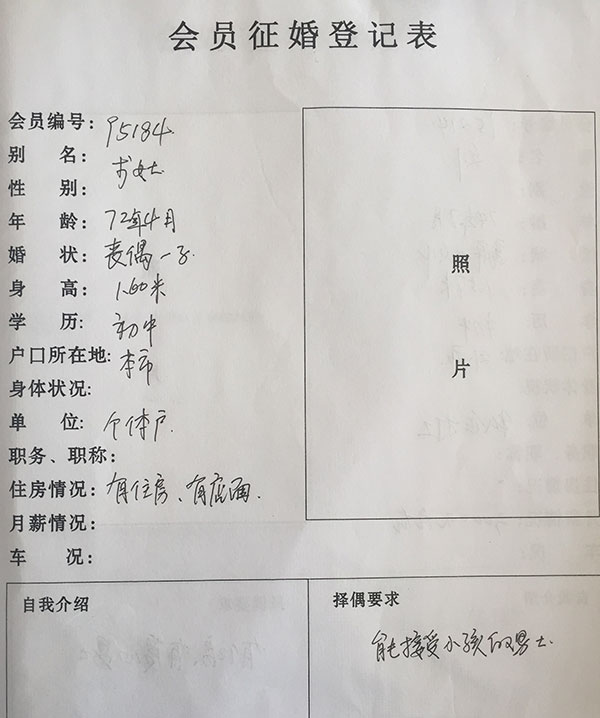 会员征婚登记表
会员编号：95184
别 名：
女士
性 别：
年 龄：72年4月
婚 状：丧偶一子
身 高：1.60米
学 历：初中
户口所在地：本市
身体状况:
单 位：个体户
职务、职称：
住房情况：有住房、有店面.
月薪情况：
车 况：
照
片
自我介绍
择偶要求
能接受小孩的男士